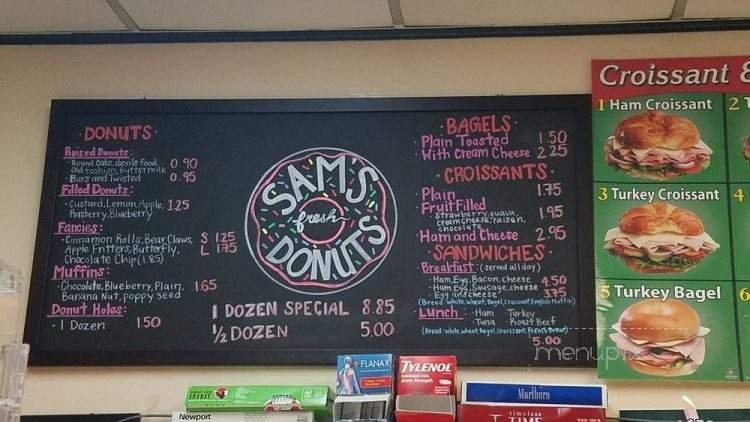 DONUTS
Raised Donuts:
Round Cake, devils food, 0.90
Old fashion, Buttermilk
Bars and Twisted 0.95
Filled Donuts:
Custard, Lemon, Apple, 1.25
Rasberry, Blueberry
Fancies:
Cinnamon Rolls, Bear Claws, S 1.25
Apple Fritters, Butterfly, L 1.75
Chocolate Chip (1.85)
Muffins:
Chocolate, Blueberry, Plain, 1.65
Banana Nut, poppy seed
Donut Holes:
1 Dozen 1.50
SAM'S
fresh
DONUTS
1 DOZEN SPECIAL 8.85
1/2 DOZEN 5.00
BAGELS
Plain Toasted 1.50
With Cream Cheese 2.25
CROISSANTS
Plain 1.75
Fruit Filled 1.95
Strawberry, guava,
cream cheese, raisen,
chocolate
Ham and Cheese 2.95
SANDWICHES
Breakfast: (served all day)
Ham, Egg, Bacon, cheese 4.50
Ham, Egg, Sausage, cheese
Egg and cheese
(Bread: white, wheat, Bagel, Croissant, English Muffin)
Lunch: Ham Turkey
Tuna Roast Beef
(Bread: white, wheat, Bagel, Croissant, French Bread)
5.00
Croissant &
1 Ham Croissant
2
3 Turkey Croissant
4
5 Turkey Bagel
6
menupix
AMERICAN SPIRIT
Newport
FLANAX
TYLENOL
Extra Strength
Marlboro
timeless
TIME